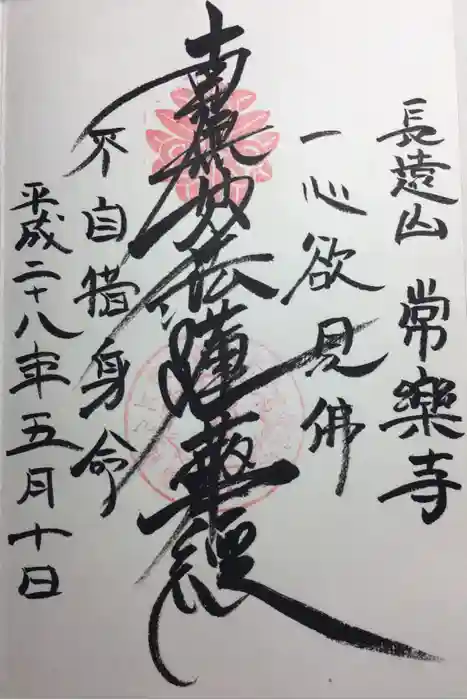 長遠山 常樂寺
一心欲見佛
南無妙法蓮華經
不自惜身命
平成二十八年五月十日